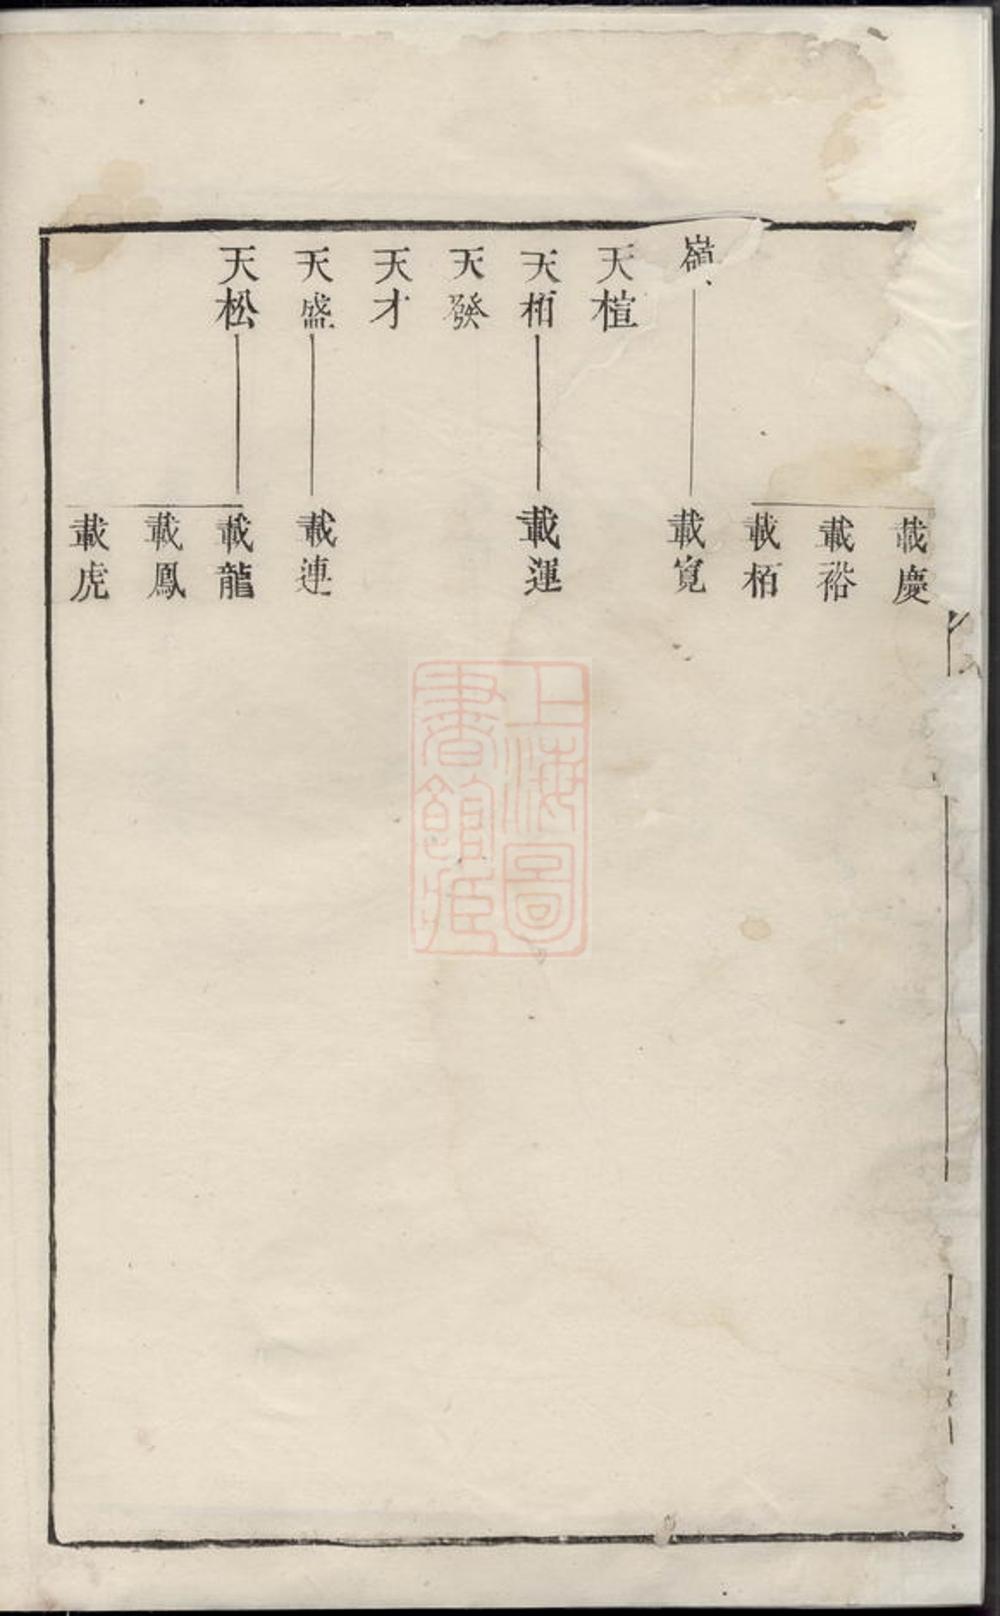 載慶
載裕
載栢
嶺
載寬
天楦
天栢
載運
天發
天才
天盛
載連
天松
載龍
載鳳
載虎
上海圖
書館藏